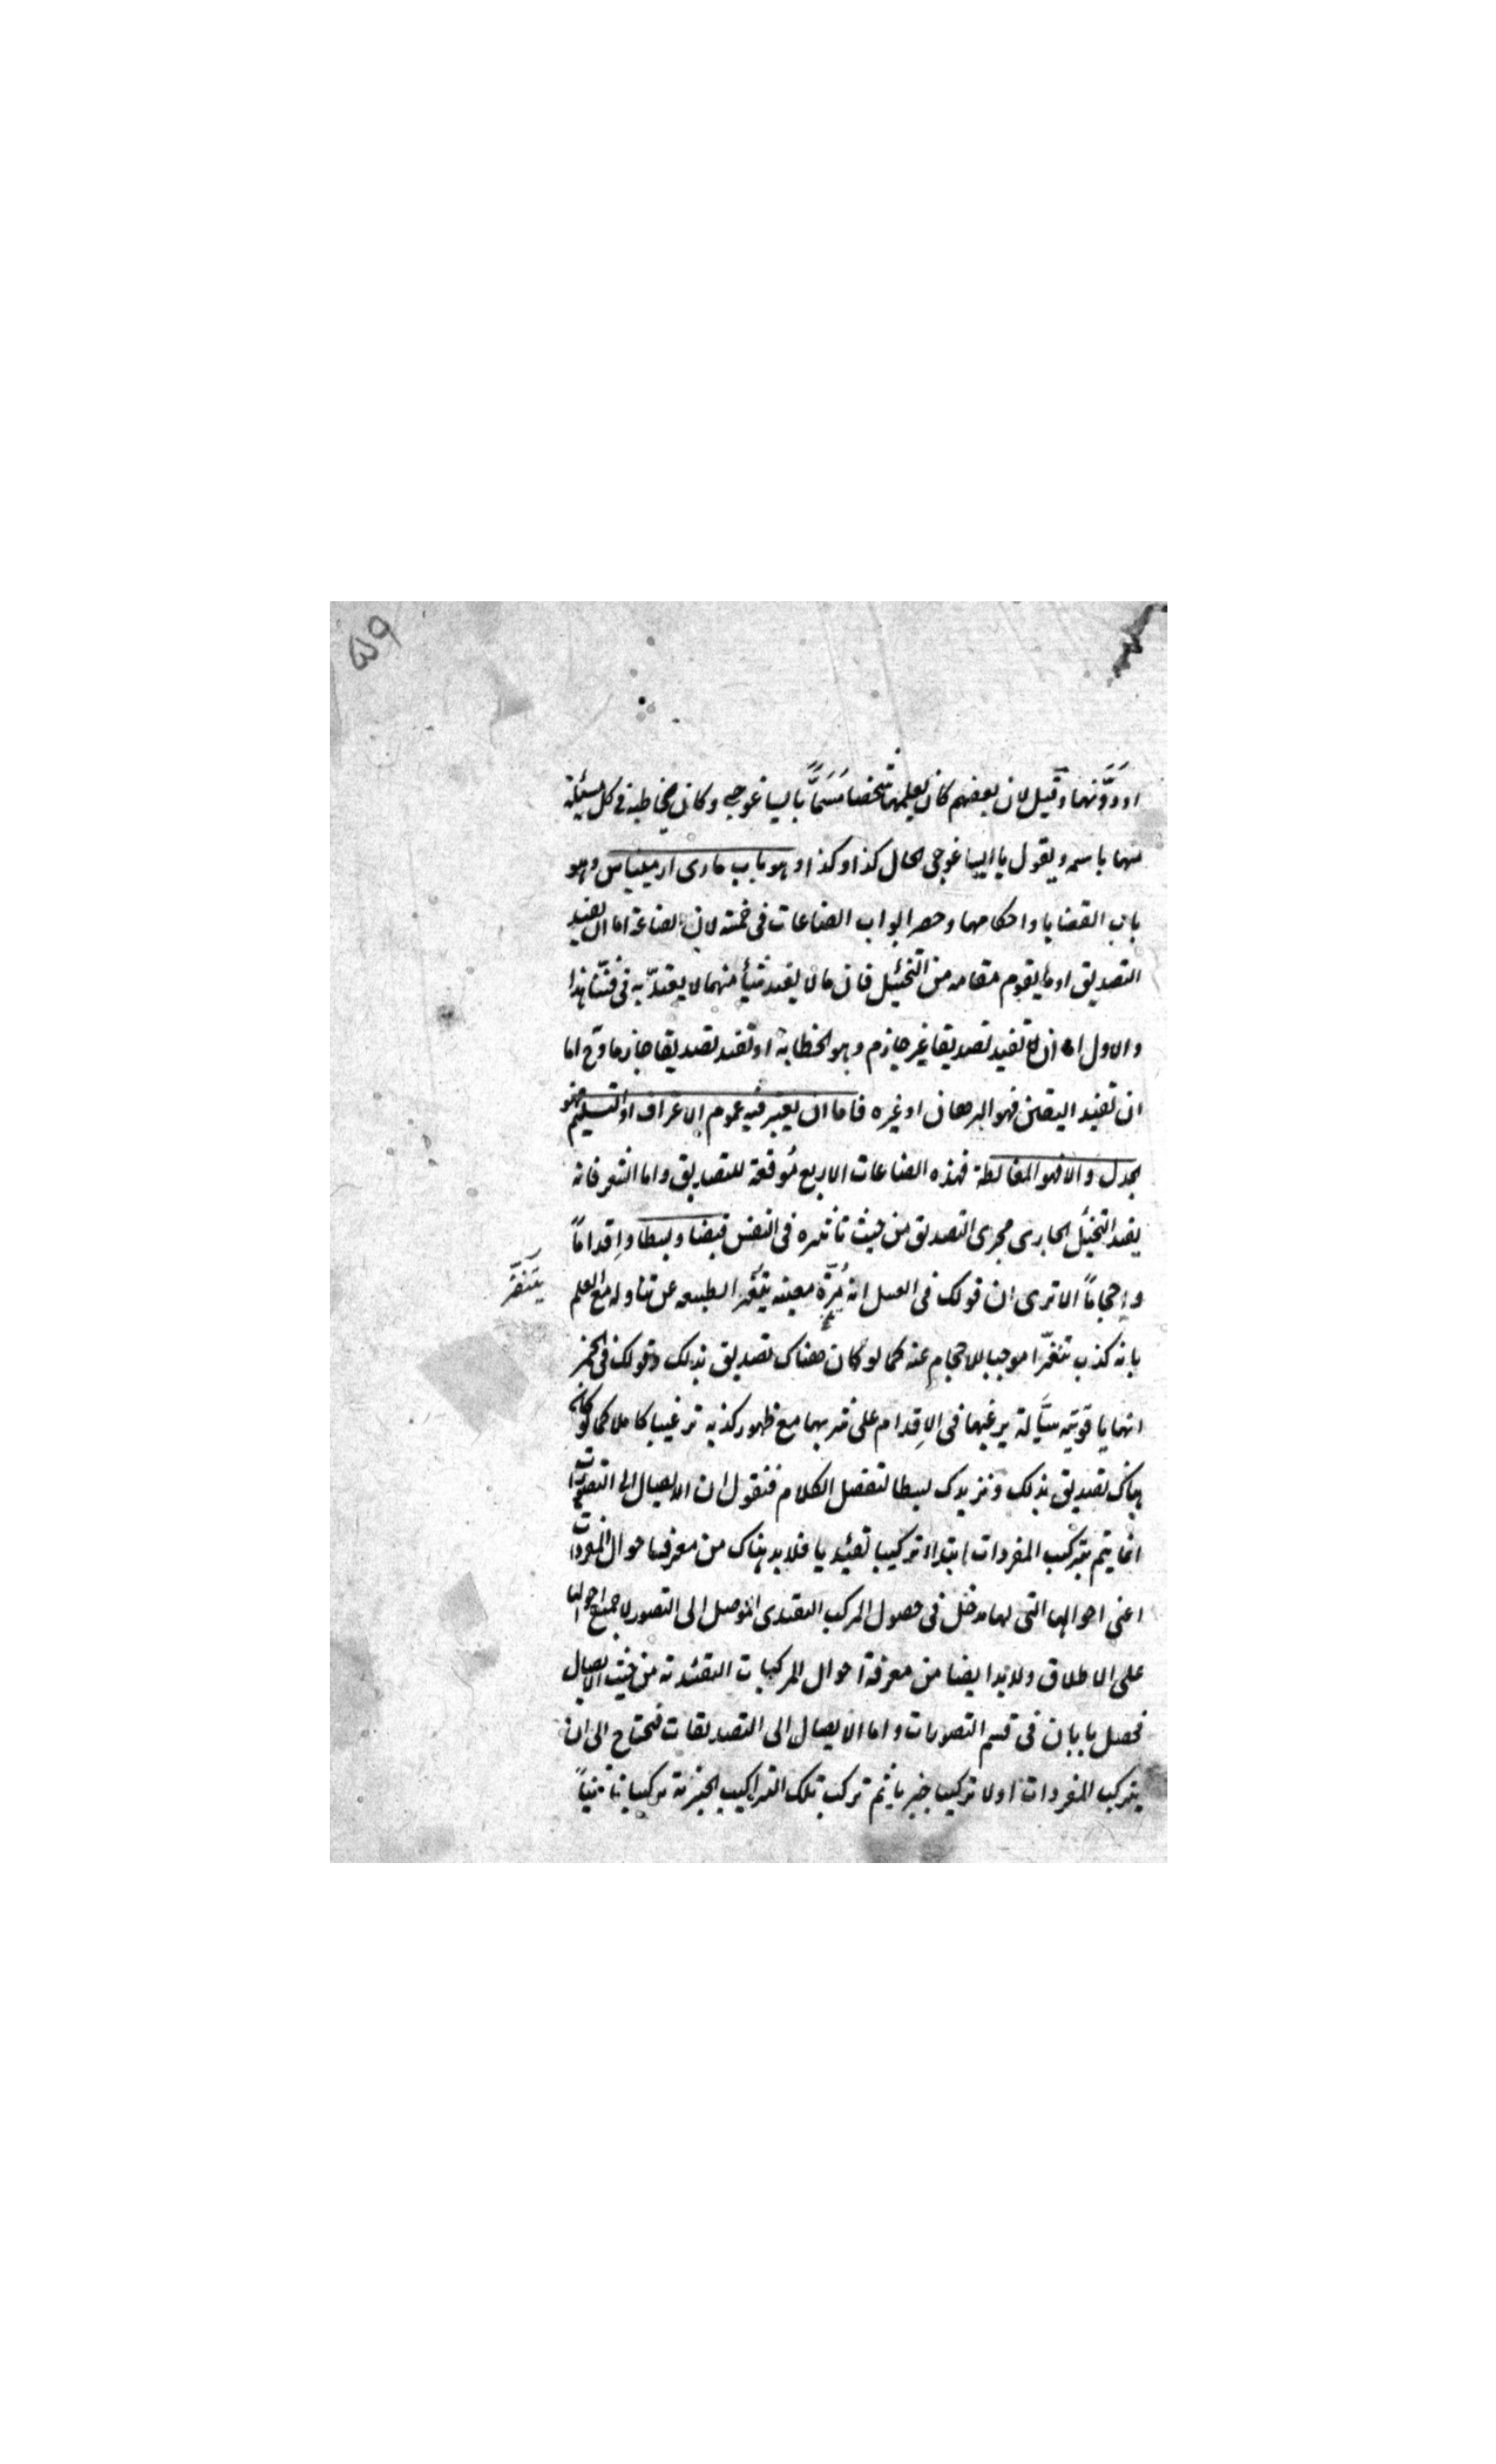 ٥٩
او دوّنها وقيل لان بعضهم كان يعلمها شخصا مسمّا بايساغوجى وكان يخاطبه فى كل مسئلة
منها باسمه ويقول يا ايساغوجى الحال كذا وكذا وهو باب مارى ارميناس وهو
باب القضايا واحكامها وحصر ابواب الصناعات فى خمسة لان الصناعة اما ان يفيد
التصديق او ما يقوم مقامه من التخيّل فان ما لا يفيد شيأ منهما لا يعتدّ به فى فنّنا هذا
والاول اما ان تفيد تصديقا غير جازم وهو الخطابة او تفيد تصديقا جازما وح اما
ان تفيد اليقين فهو البرهان او غيره فاما ان يعتبر فيه عموم الاعتراف او التسليم فهو
الجدل والا فهو المغالطة فهذه الصناعات الاربع مُوقعة للتصديق واما الشعر فانه
يفيد التخيّل الجارى مجرى التصديق من حيث تاثيره فى النفس قبضا وبسطا واِقداماً
واِحجاماً الا ترى ان قولك فى العسل انه مُِرّة مقيئه يتنفّر الطبيعه عن تناوله مع العلم
يتنفّر
بانه كذب تنفّرا موجبا للاحجام عنه كما لو كان هناك تصديق بذلك وقولك فى الخمر
انها ياقوتيه سيّالة يرغبها فى الاِقدام على شربها مع ظهور كذبه ترغيبا كاملا كما لو كان
هناك تصديق بذلك ونزيدك بسطا لتفصيل الكلام فنقول ان الايصال الى التصورات
انما يتم بتركيب المفردات ابتداء تركيبا تقييديا فلا بد هناك من معرفة احوال المفردات
اعنى احوالها التى لها مدخل فى حصول المركب التقييدى الموصل الى التصور لا جميع احوالها
على الاطلاق ولا بد ايضا من معرفة احوال المركبات التقييدية من حيث الايصال
فحصل بابان فى قسم التصورات واما الايصال الى التصديقات فيحتاج الى ان
يتركب المفردات اولا تركيبا خبريا ثم تركب تلك التراكيب الخبرية تركيبا ثانياً